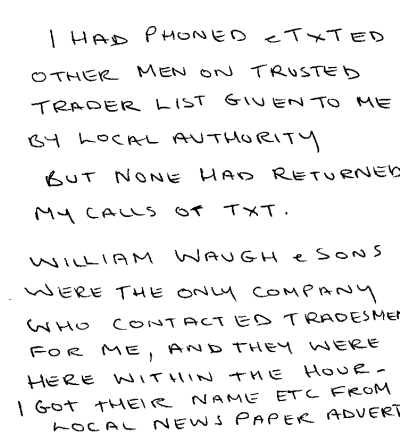 I HAD PHONED & TXTED
OTHER MEN ON TRUSTED
TRADER LIST GIVEN TO ME
BY LOCAL AUTHORITY
BUT NONE HAD RETURNED
MY CALLS OT TXT.
WILLIAM WAUGH & SONS
WERE THE ONLY COMPANY
WHO CONTACTED TRADESMEN
FOR ME, AND THEY WERE
HERE WITHIN THE HOUR -
I GOT THEIR NAME ETC FROM
LOCAL NEWS PAPER ADVERT